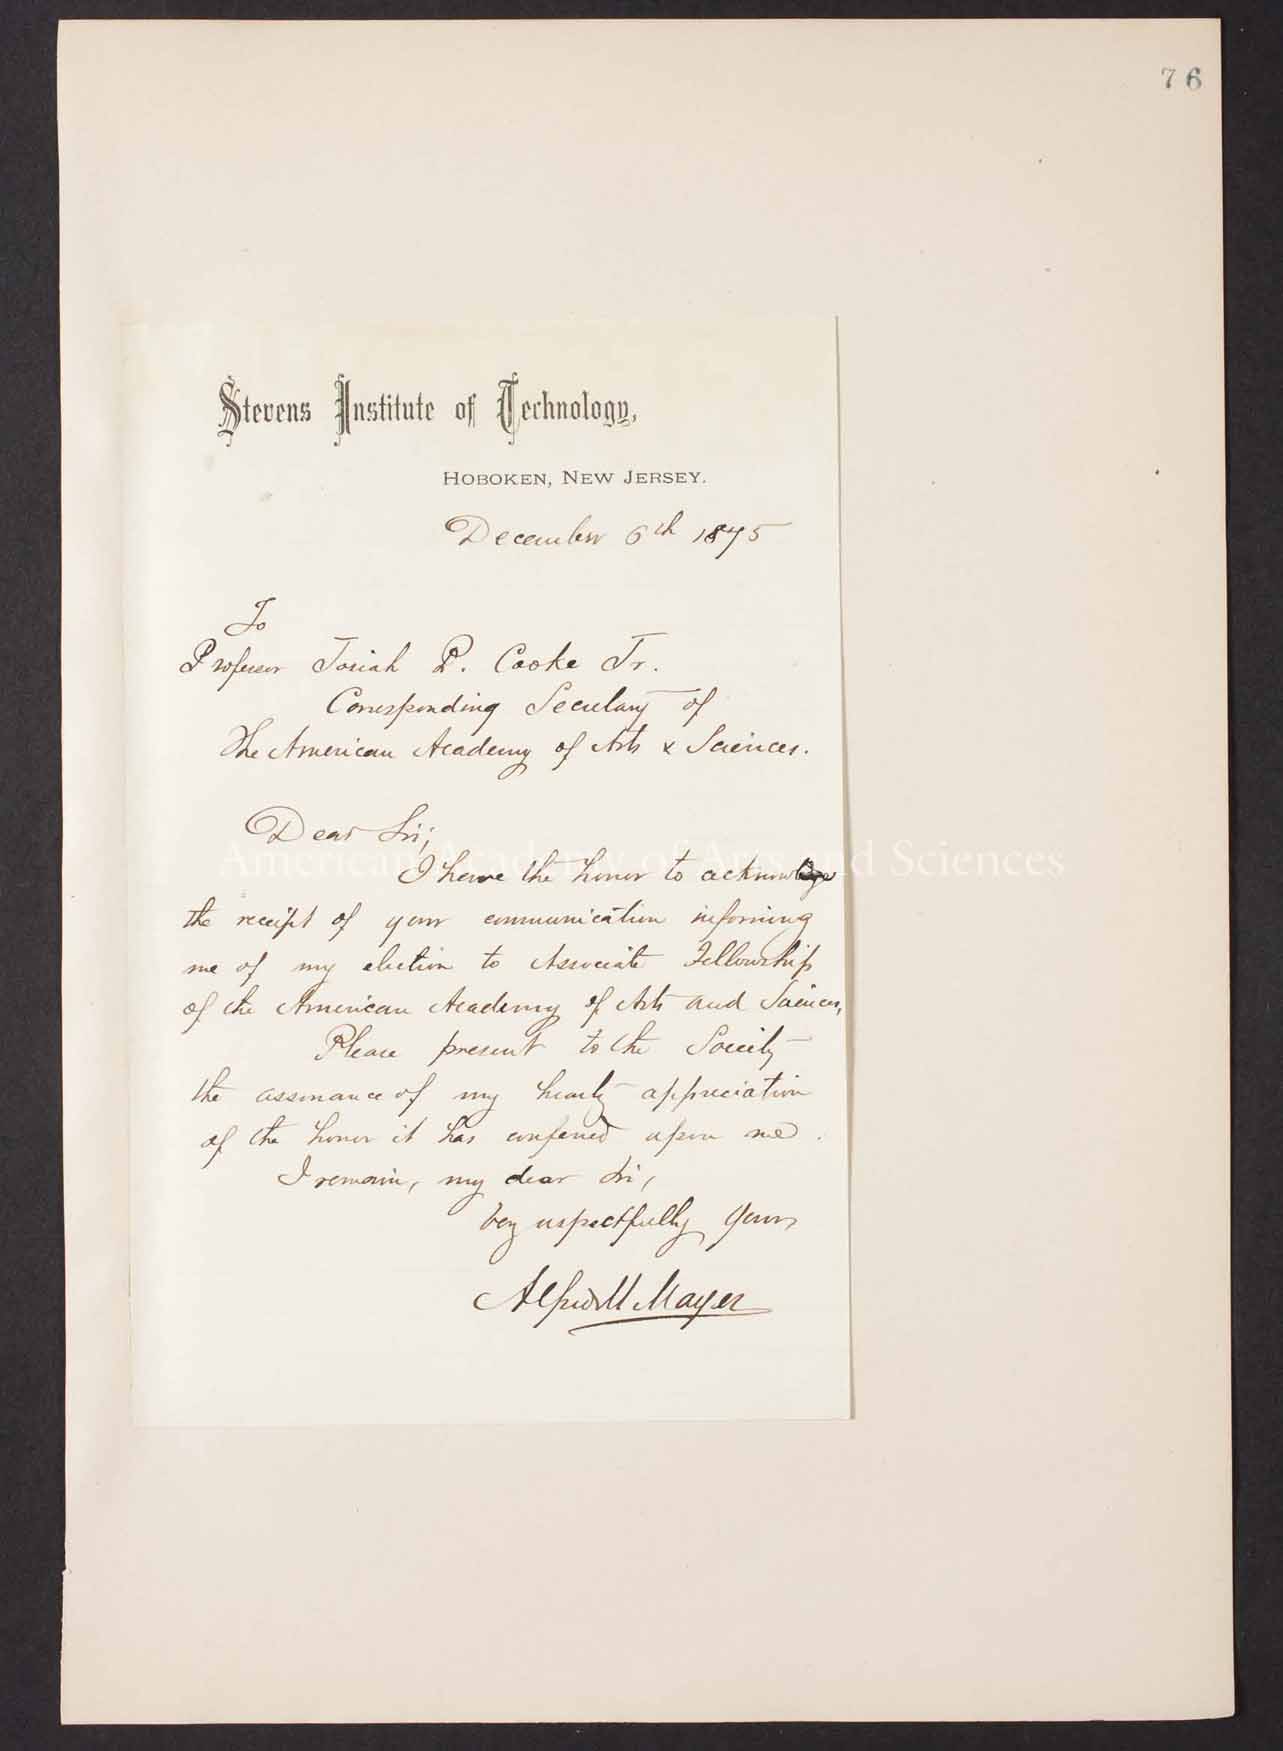 76
Stevens Institute of Technology,
Hoboken, New Jersey.
December 6th 1875
To
Professor Josiah P. Cooke Jr.
Corresponding Secretary of
The American Academy of Arts & Sciences.
Dear Sir;
American Academy of Arts and Sciences
I have the honor to acknowledge
the receipt of your communication informing
me of my election to Associate Fellowship
of the American Academy of Arts and Sciences,
Please present to the Society
the assurance of my hearty appreciation
of the honor it has conferred upon me.
I remain, my dear Sir,
Very respectfully Yours
Alfred M Mayer